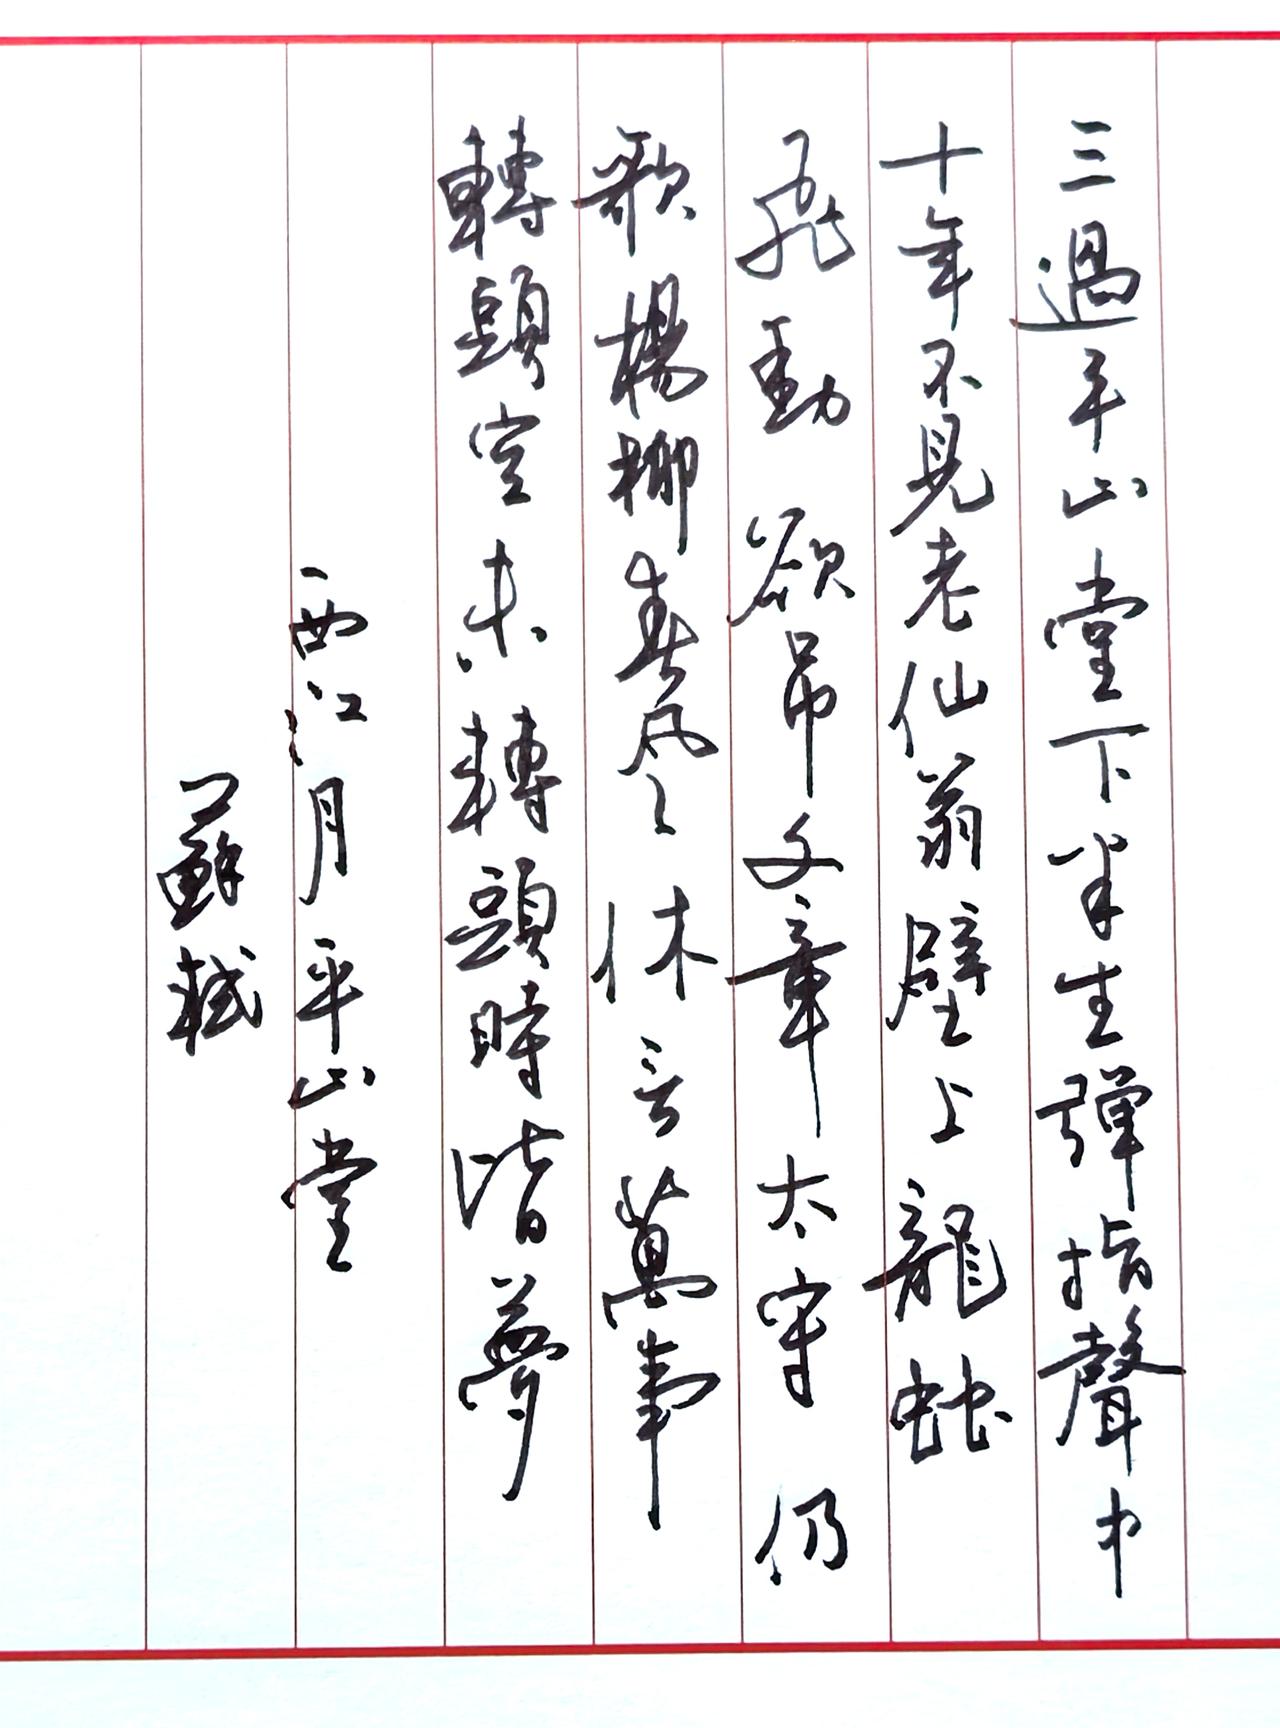 三過平山堂下半生彈指聲中
十年不見老仙翁壁上龍蛇
飛動欲吊文章太守仍
歌楊柳春風休言萬事
轉頭空未轉頭時皆夢
西江月平山堂
蘇軾